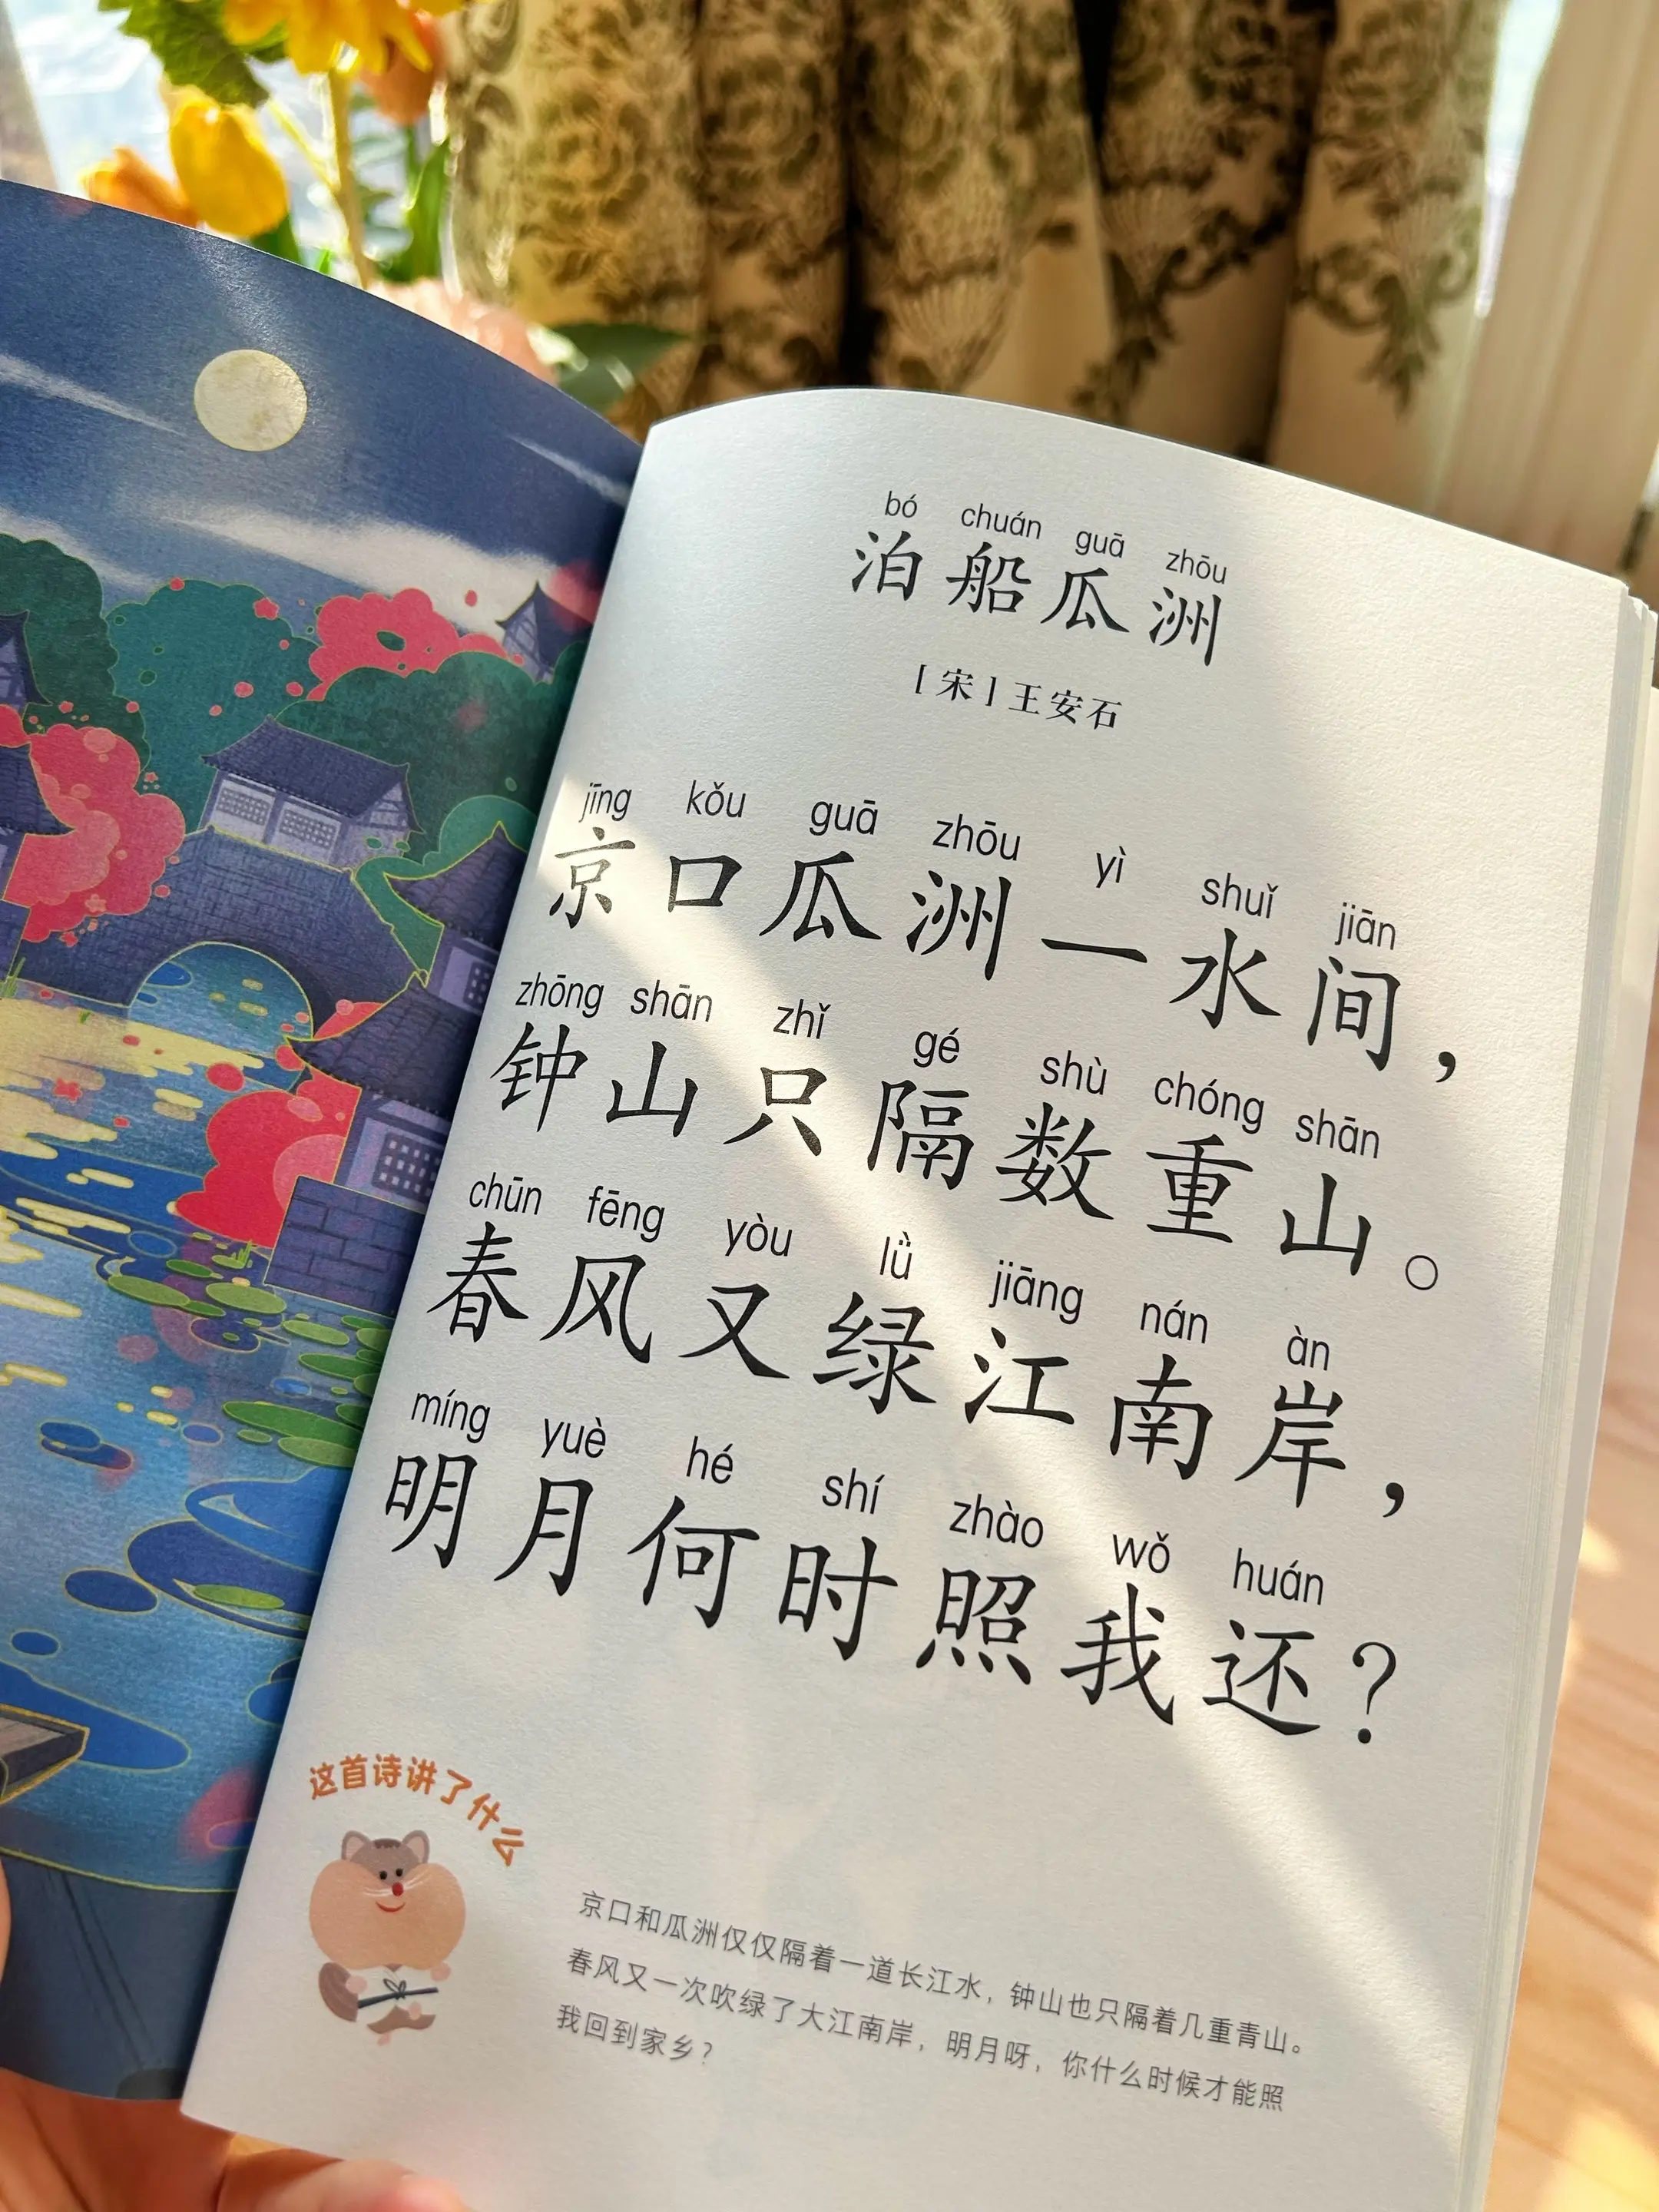 bó chuán guā zhōu
泊船瓜洲
[宋]王安石
jīng kǒu guā zhōu yì shuǐ jiān
京口瓜洲一水间，
zhōng shān zhǐ gé shù chóng shān
钟山只隔数重山。
chūn fēng yòu lǜ jiāng nán àn
春风又绿江南岸，
míng yuè hé shí zhào wǒ huán
明月何时照我还？
这首诗讲了什么
京口和瓜洲仅仅隔着一道长江水，钟山也只隔着几重青山。
春风又一次吹绿了大江南岸，明月呀，你什么时候才能照
我回到家乡？